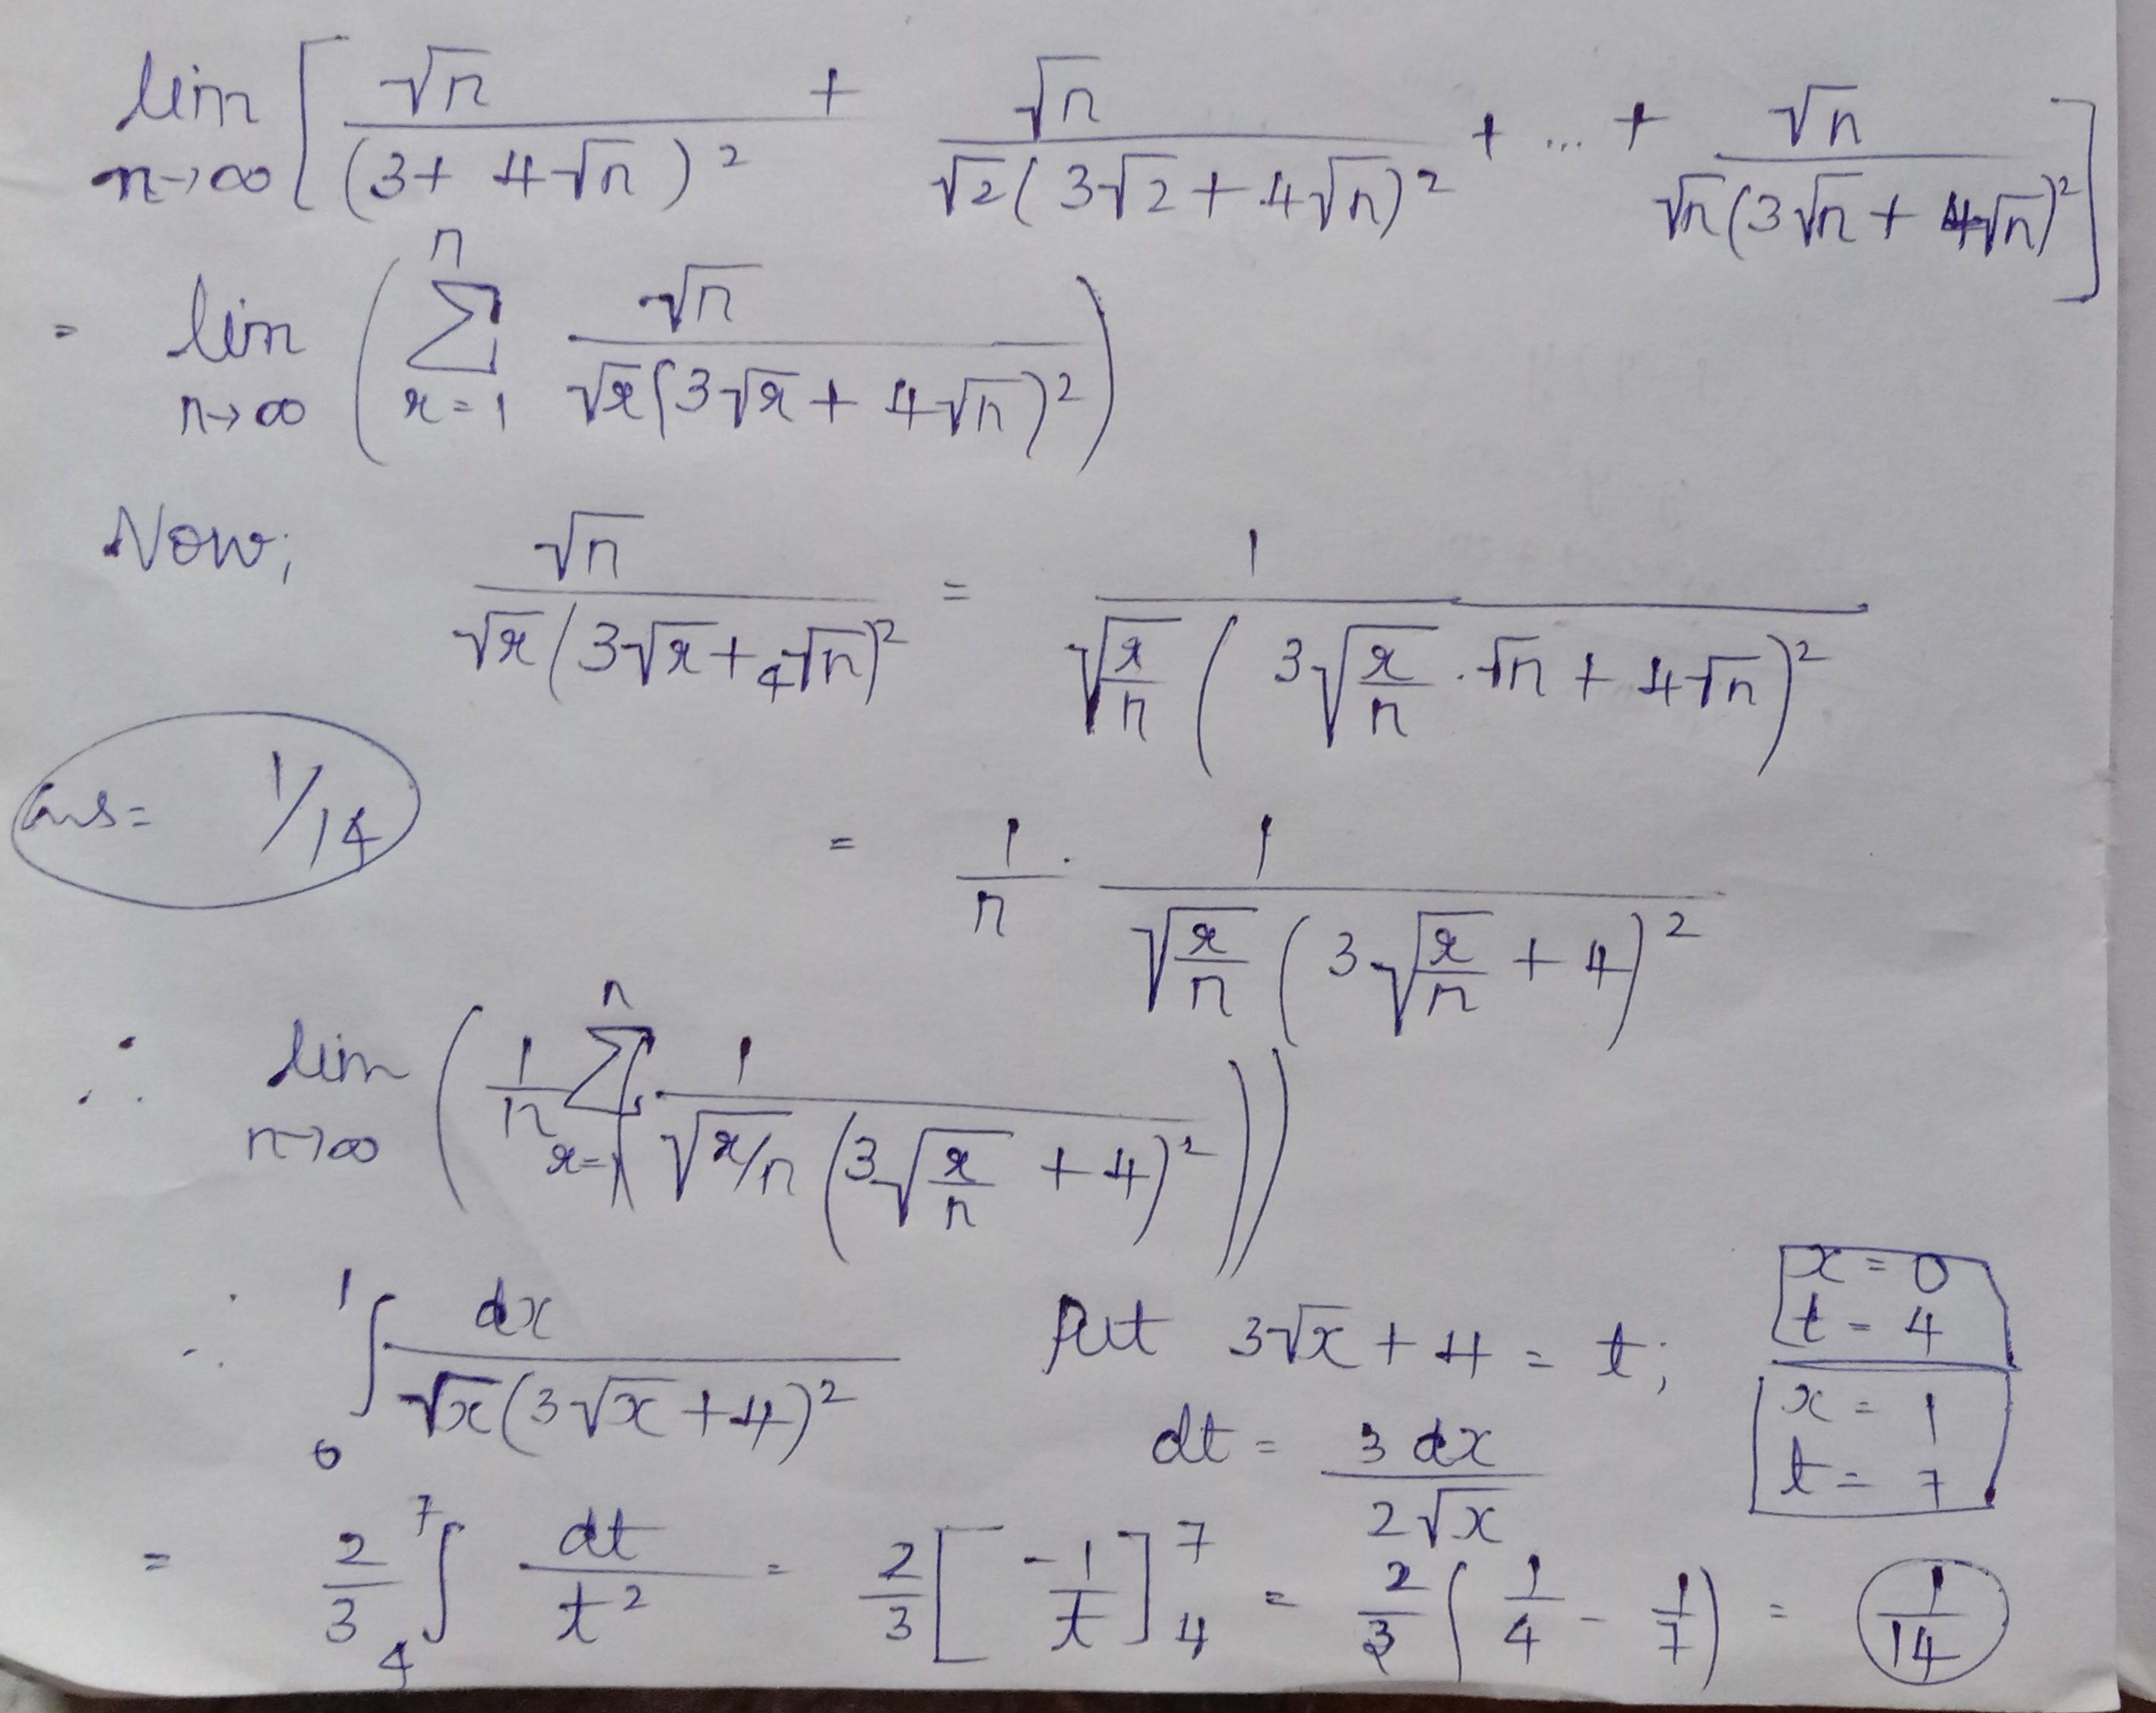 lim n→∞ [ √n / (3 + 4√n)² + √n / √2(3√2 + 4√n)² + ... + √n / √n(3√n + 4√n)² ]
= lim n→∞ ( n Σ r=1 √n / √r(3√r + 4√n)² )
Now; √n / √r(3√r + 4√n)² = 1 / √(r/n) ( 3√(r/n) · √n + 4√n )²
ans = 1/14
= 1/n · 1 / √(r/n) ( 3√(r/n) + 4 )²
∴ lim n→∞ ( 1/n n Σ r=1 ( 1 / √(r/n) ( 3√(r/n) + 4 )² ) )
∴ 1 ∫ 0 dx / √x(3√x + 4)² Put 3√x + 4 = t; x = 0 t = 4
dt = 3 dx / 2√x x = 1 t = 7
= 2/3 7 ∫ 4 dt / t² = 2/3 [ -1/t ] 7 4 = 2/3 ( 1/4 - 1/7 ) = 1/14